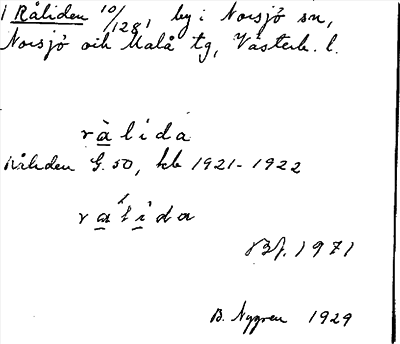 1 Råliden 10/1281 by i Norsjö sn,
Norsjö och Malå tg, Västerb. l.
ràlida
Råliden G. 50, kb 1921-1922
ralida
Bf. 1971
B. Nygren 1929